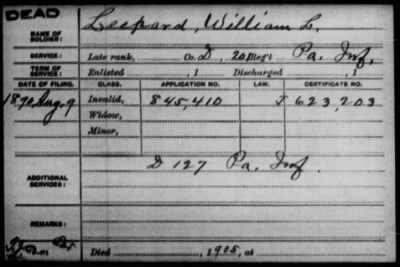 DEAD
NAME OF SOLDIER: Leopard, William L.
SERVICE: Late rank, Co. D, 20 Reg't Pa. Inf.
TERM OF SERVICE: Enlisted , 1 Discharged , 1
DATE OF FILING. CLASS. APPLICATION NO. LAW. CERTIFICATE NO.
1890 Aug. 9 Invalid, 845,410 J 623,203
Widow,
Minor,
D 127 Pa. Inf.
ADDITIONAL SERVICES:
REMARKS:
Died , 1905, at